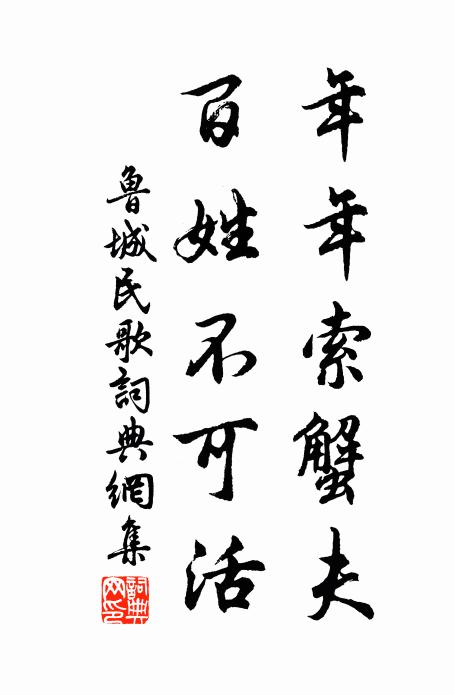 年年索蟹夫
百姓不可活
魯城民歌詞典網集
詞典網印